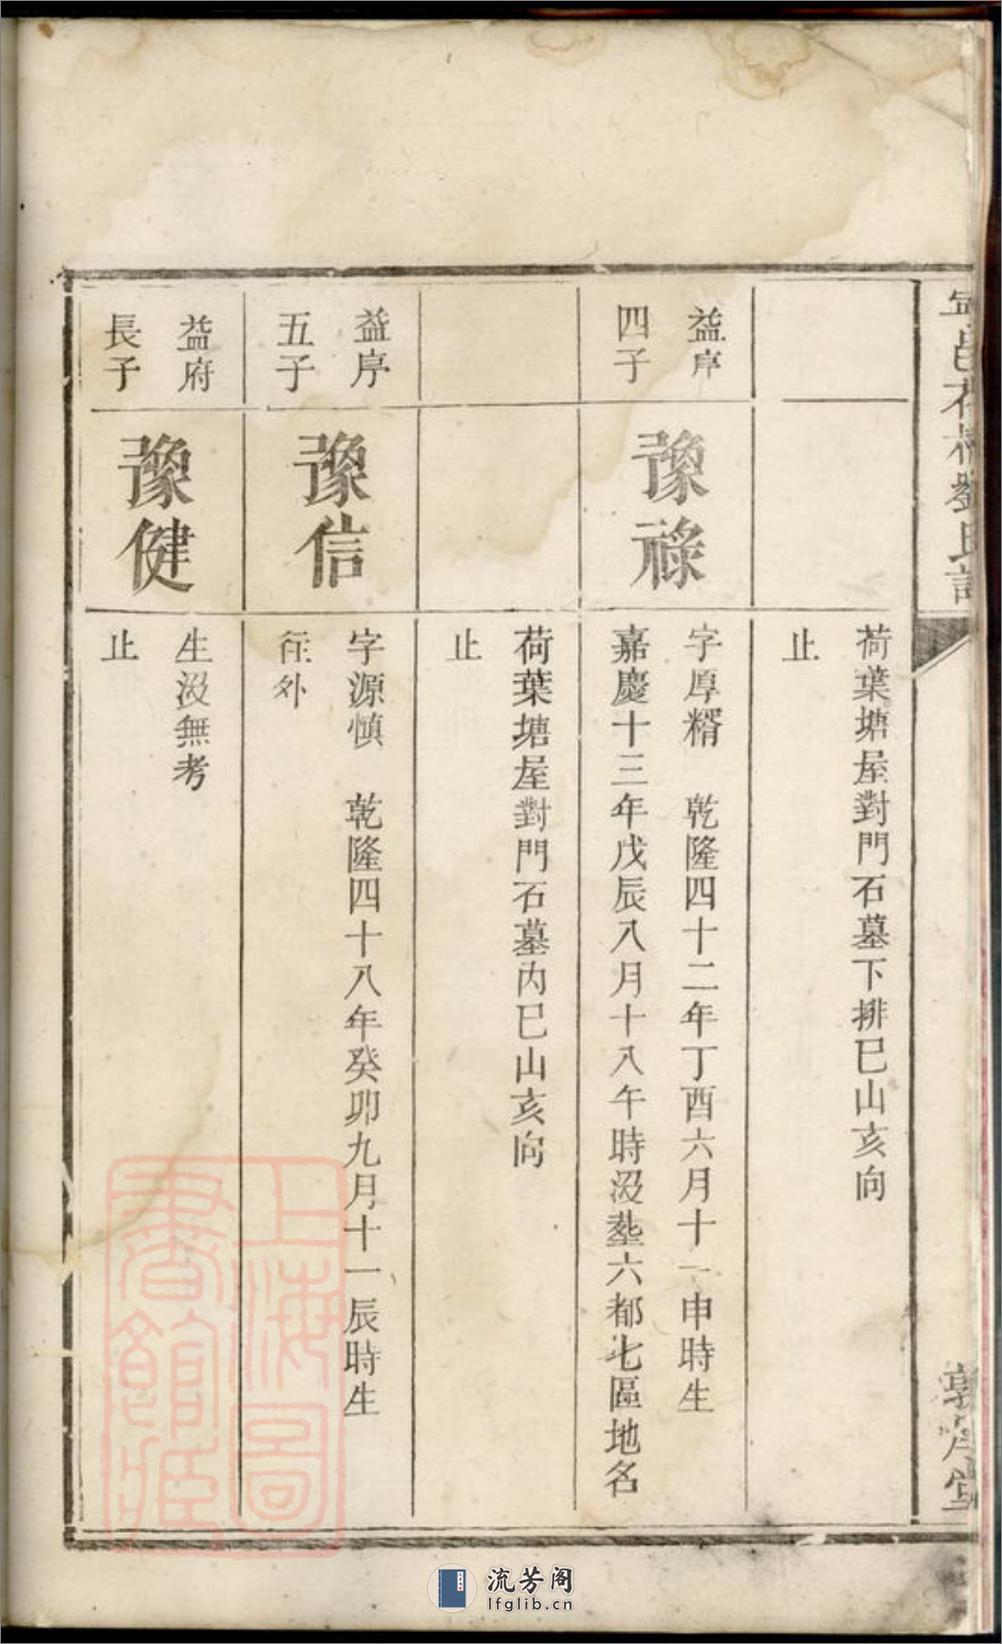 荷葉塘屋對門石墓下排巳山亥向
止
益序
四子
豫祿
字厚糈　乾隆四十二年丁酉六月十一申時生
嘉慶十三年戊辰八月十八午時沒塟六都七區地名
荷葉塘屋對門石墓內巳山亥向
止
益序
五子
豫信
字源慎　乾隆四十八年癸卯九月十一辰時生
徃外
益府
長子
豫健
生沒無考
止
上海圖
書館藏
流芳阁
lfglib.cn